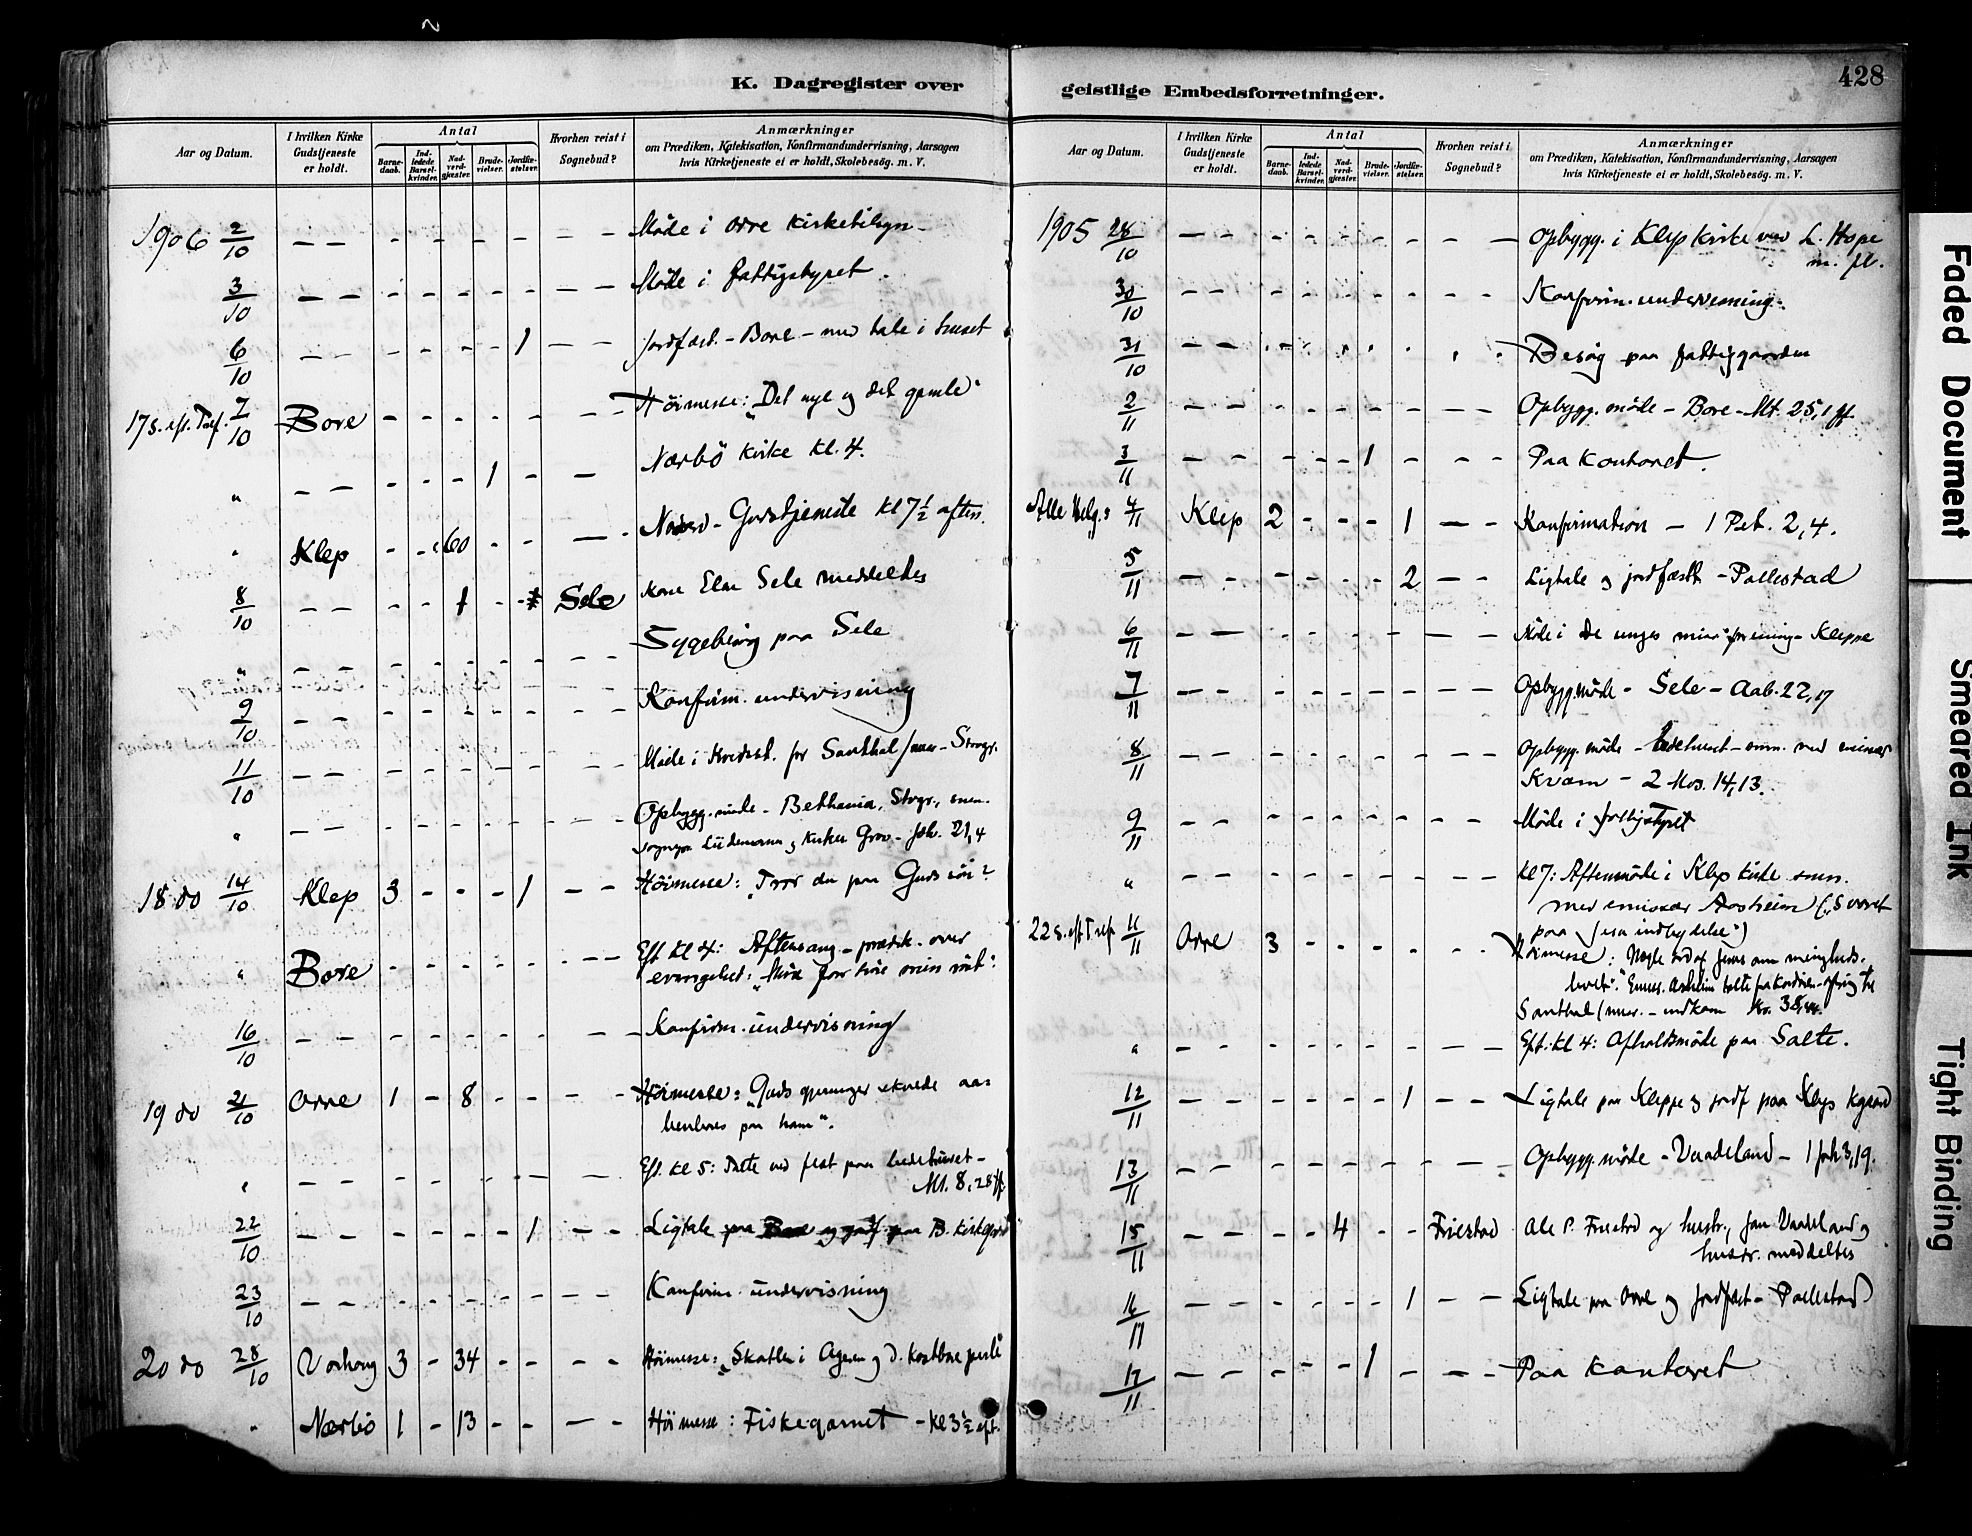 K. Dagregister over
Aar og Datum.
I hvilken Kirke Gudstjeneste er holdt.
Antal
Barne-daab.
Ind-ledede Barsel-kvinder.
Nad-verd-gjæster.
Brude-vielser.
Jordfæ-stelser.
Hvorhen reist i Sognebud?
Anmærkninger
om Prædiken, Katekisation, Konfirmandundervisning, Aarsagen
hvis Kirketjeneste ei er holdt, Skolebesög. m. V.
1906 2/10 — — - - - - - — — Møde i Orre kirketilsyn
3/10 — — - - - - - — — Møde i fattigstyret.
6/10 — — - - - - 1 — — Jordfæst. - Bore - med tale i huset
17 s. eft. Tref. 7/10 Bore - - - - - — Höimesse: "Det nye og det gamle"
" — — - - - 1 - — Nærbö kirke kl. 4.
" Klep - - 60 - - — - Gudstjeneste kl 7½ aften.
8/10 — — - - 1 - - Sele Kone Elen Sele meddeltes
" — — - - - - - — — Sygebesög paa Sele
9/10 — — - - - - - — — Konfirm. undervisning
11/10 — — - - - - - — — Møde i Kredsst. for Santhalmis. - Stvgr.
" — — - - - - - — — Opbygg. møde - Bethania, Stvgr., smm.
Joh. 21,4
18 do 14/10 Klep 3 - - - 1 — - Höimesse: "Tror du paa Guds sön?
" Bore - - - - - — — Eft. kl 4: Aftensang - prædik. over
evangeliet:
16/10 — — - - - - - — — Konfirm. undervisning
19 do 21/10 Orre 1 - 8 - - - - Höimesse: "Guds gjerninger skulde aa-
benbares paa ham".
" — — - - - - - — — Eft. kl 5: Tale ved fest paa bedehuset -
Mt. 8,28 ff.
22/10 — — - - - - 1 — — Ligtale paa Bore og jordf. paa B. kirkegaard
23/10 — — - - - - - — — Konfirm. undervisning
20 do 28/10 Varhaug 3 - 34 - - - - Höimesse: "Skatten i Ageren og d. kostbare perle"
" Nærbö 1 - 13 - - — - Höimesse: Fiskegarnet - kl 3½ eft.
geistlige Embedsforretninger.
428
Aar og Datum.
I hvilken Kirke Gudstjeneste er holdt.
Antal
Barne-daab.
Ind-ledede Barsel-kvinder.
Nad-verd-gjæster.
Brude-vielser.
Jordfæ-stelser.
Hvorhen reist i Sognebud?
Anmærkninger
om Prædiken, Katekisation, Konfirmandundervisning, Aarsagen
hvis Kirketjeneste ei er holdt, Skolebesög. m. V.
1905 28/10 — — - - - - - - — Opbygg. i Klep kirke ved L. Hope
m. fl.
30/10 — — - - - - - - - Konfirm. undervisning.
31/10 — — - - - - - - - Besög paa fattiggaarden
2/11 — — - - - - - - - Opbygg. møde - Bore - Mt. 25,1 ff
3/11 — — - - - 1 - - - Paa kontoret.
Alle Helg. s 4/11 Klep 2 - - - 1 — - Konfirmation — 1 Pet. 2,4.
5/11 — — - - - - 2 — - Ligtale og jordfæst - Pollestad
6/11 — — - - - - - — — Møde i De unges misforening - Kleppe
7/11 — — - - - - - — — Opbygg. møde - Sele - Aab. 22,17
8/11 — — - - - - - — — Opbygg. møde - bedehuset - smm. med emissær
Kvam - 2 Mos. 14,13.
9/11 — — - - - - - - — Møde i fattigstyret
" — — - - - - - - - Kl 7: Aftensmøde i Klep kirke smm.
med emissær Aasheim ("Svaret
paa Jesu indbydelse")
22 s. eft Tref 11/11 Orre 3 - - - - - - Höimesse: Nogle ord af Jesus om menigheds-
livet". Emiss. Aasheim talte fra kordören - ofring til
Santhalmis. - indkom Kr. 38,
" — — - - - - - — — Eft. kl 4: Afholdsmøde paa Salte.
12/11 — — - - - - 1 — — Ligtale paa Kleppe og jordf paa Klep kgaard
13/11 — — - - - - - — — Opbygg. møde - Vaadeland - 1 Joh 3,19.
15/11 — — - - 4 - - Friestad Ole P. Friestad og hustr., Jan Vaadeland og
hustr. meddeltes
16/11 — — - - - - 1 — — Ligtale paa Orre og jordfæst - Pollestad
17/11 — — - - - 1 - — — Paa kontoret
Faded Document
Smeared Ink
Tight Binding